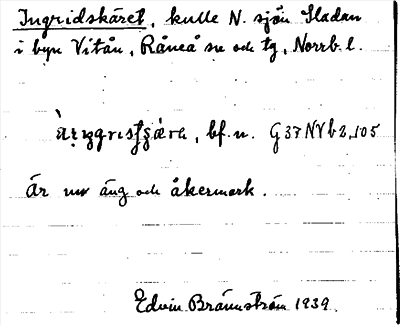 Ingridskäret, kulle N. sjön Sladan
i byn Vitån, Råneå sn och tg, Norrb. l.
bf. n. G37NVb2,105
Är nu äng och åkermark.
Edvin Brännström 1939.